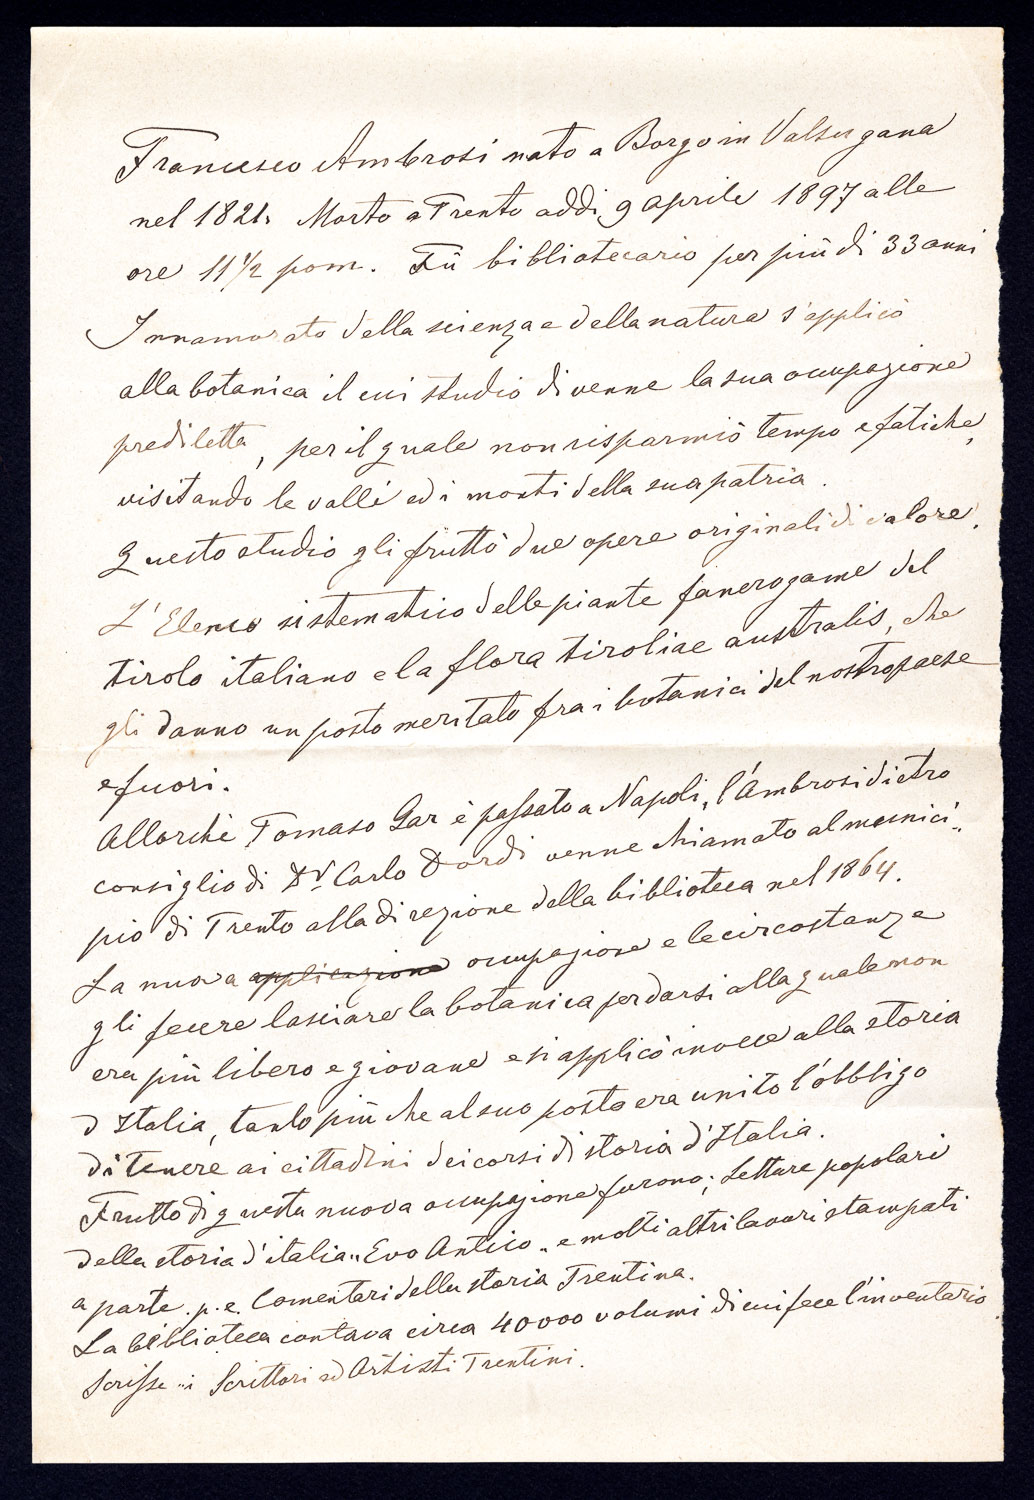 Francesco Ambrosi nato a Borgo in Valsugana
nel 1821. Morto a Trento addi 9 aprile 1897 alle
ore 11 1/2 pom. Fù bibliotecario per più di 33 anni
Innamorato della scienza e della natura s'applicò
alla botanica il cui studio divenne la sua occupazione
prediletta, per il quale non risparmiò tempo e fatiche,
visitando le valli ed i monti della sua patria.
Questo studio gli fruttò due opere originali di valore.
L'Elenco sistematico delle piante fanerogame del
tirolo italiano e la flora tiroliae australis, che
gli danno un posto meritato fra i botanici del nostro paese
e fuori.
Allorchè Tomaso Gar è passato a Napoli, l'Ambrosi dietro
consiglio di Dr. Carlo Dordi venne chiamato al munici„
pio di Trento alla direzione della biblioteca nel 1864.
La nuova applicazione occupazione e le circostanze
gli fecere lasciare la botanica per darsi alla quale non
era più libero e giovane e si applicò invece alla storia
d'Italia, tanto più che al suo posto era unito l'obbligo
di tenere ai cittadini dei corsi di storia d'Italia.
Frutto di questa nuova occupazione furono; Letture popolari
della storia d'italia „Evo Antico„ e molti altri lavori stampati
a parte. p. e. Comentari della storia Trentina.
La biblioteca contava circa 40000 volumi di cui fece l'inventario.
Scrisse „i Scrittori ed Artisti Trentini.